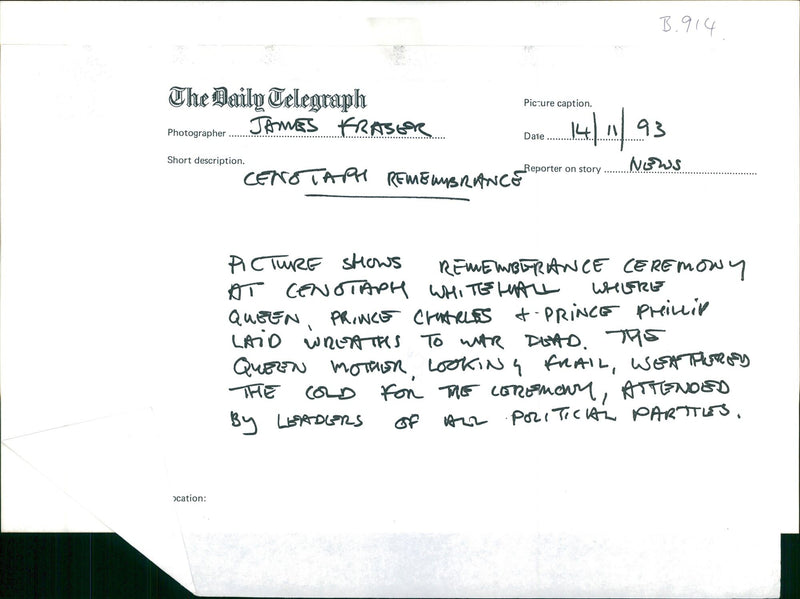 B.914
The Daily Telegraph
Picture caption.
Photographer JAMES FRASER
Date 14/11/93
Short description.
CENOTAPH REMEMBRANCE
Reporter on story NEWS
PICTURE SHOWS REMEMBERANCE CEREMONY
AT CENOTAPH WHITEHALL WHERE
QUEEN, PRINCE CHARLES + PRINCE PHILLIP
LAID WREATHS TO WAR DEAD. THE
QUEEN MOTHER, LOOKING FRAIL, WEATHERED
THE COLD FOR THE CEREMONY, ATTENDED
BY LEADERS OF ALL POLITICAL PARTIES.
ocation: